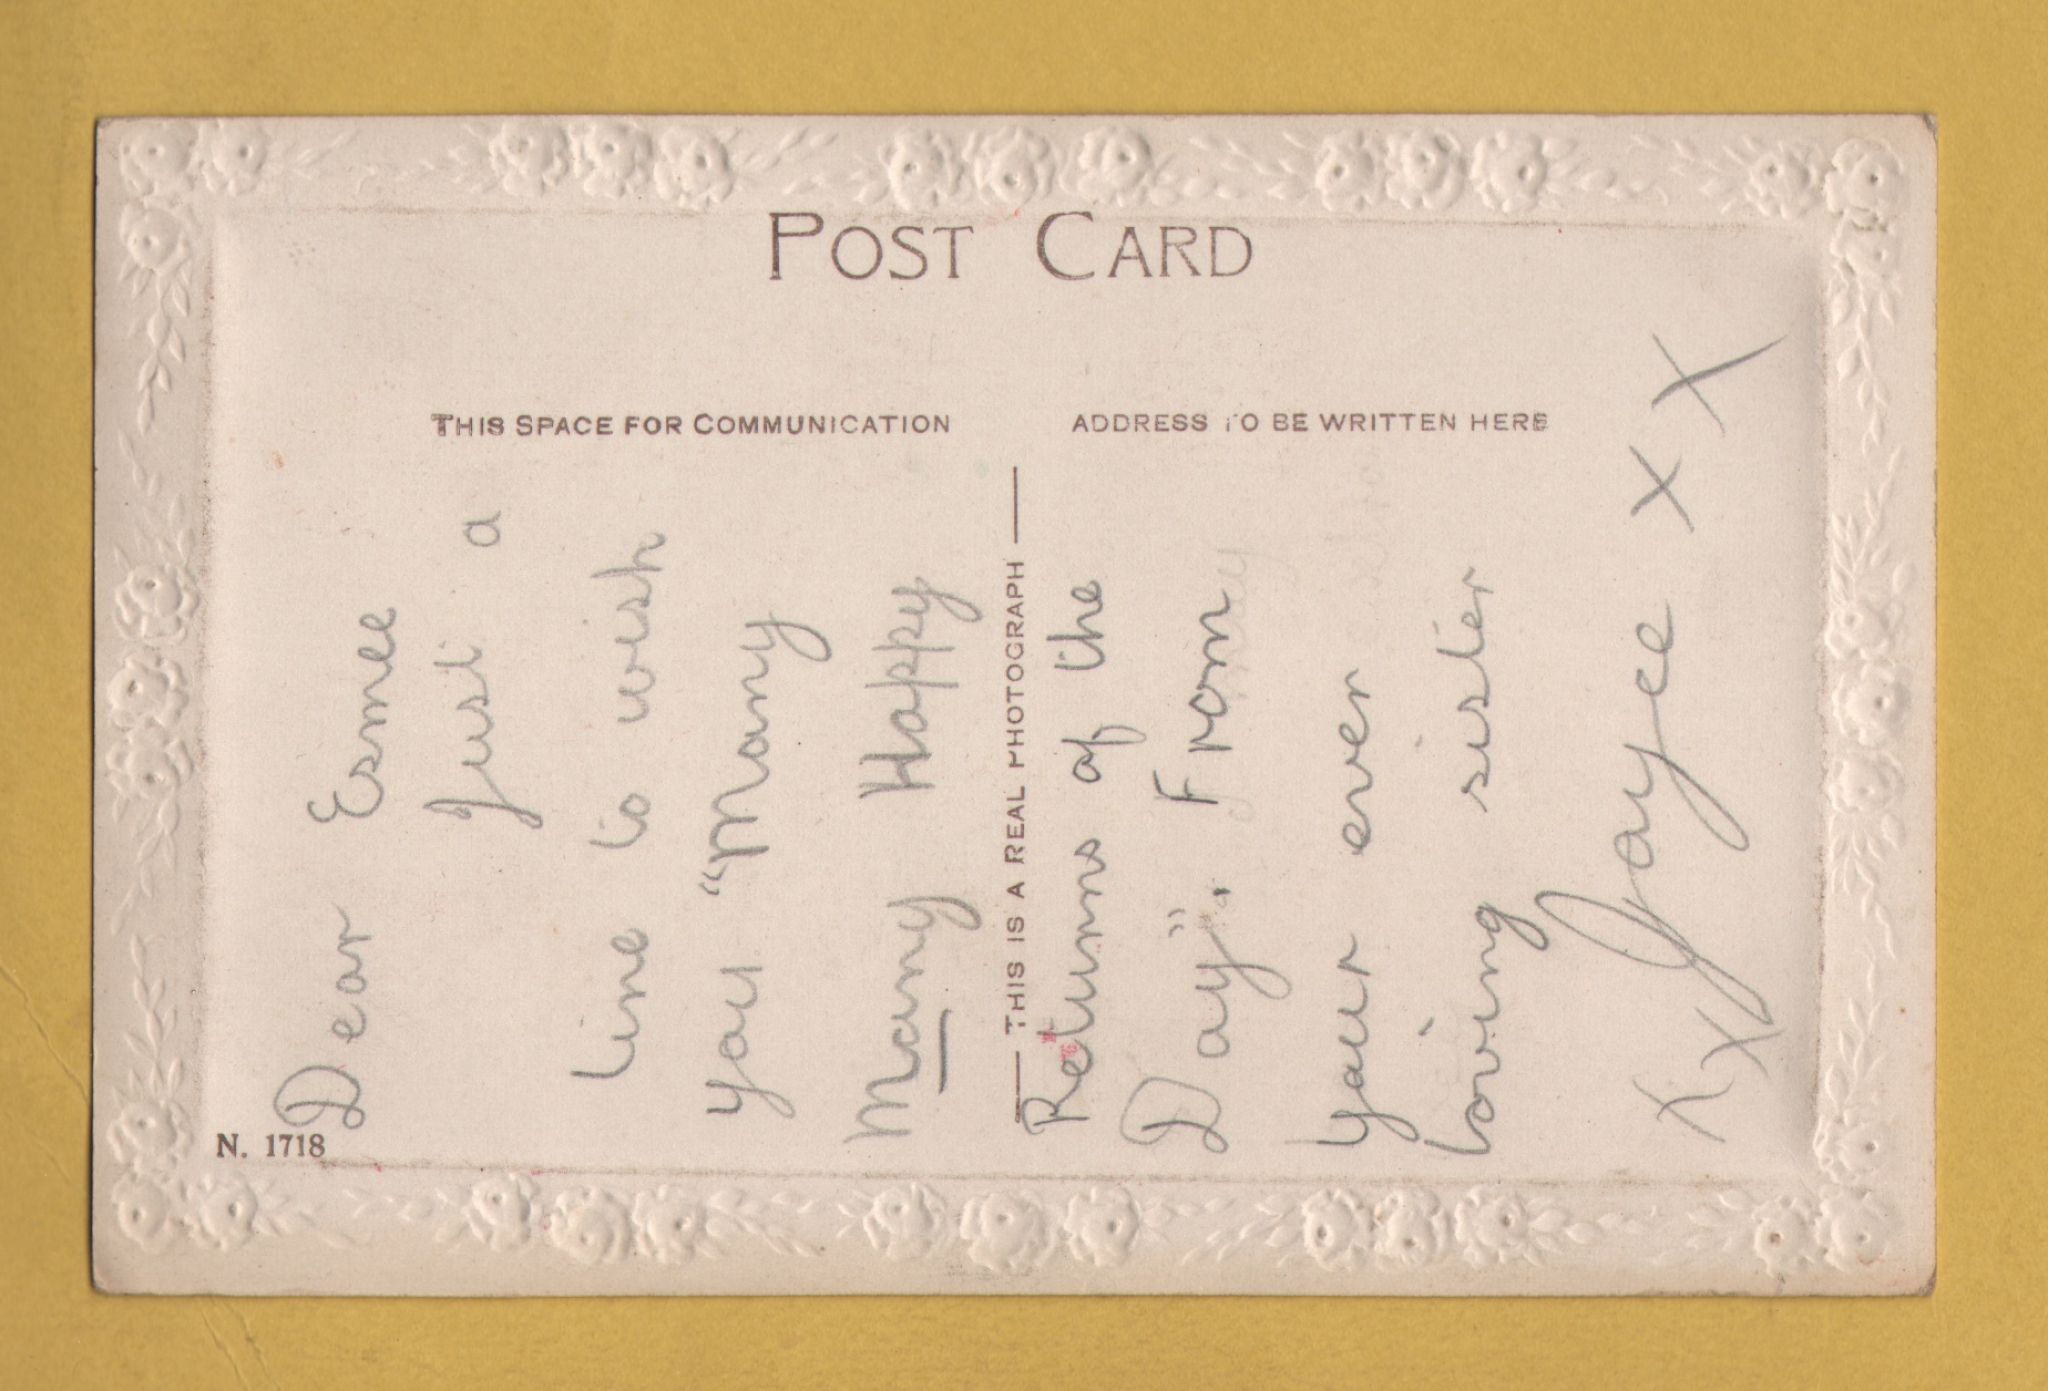 POST CARD
THIS SPACE FOR COMMUNICATION
ADDRESS TO BE WRITTEN HERE
THIS IS A REAL PHOTOGRAPH
N. 1718
Dear Esmee
Just a
line to wish
you "Many
Many Happy
Returns of the
Day". From
your ever
loving sister
xx Jayce xx